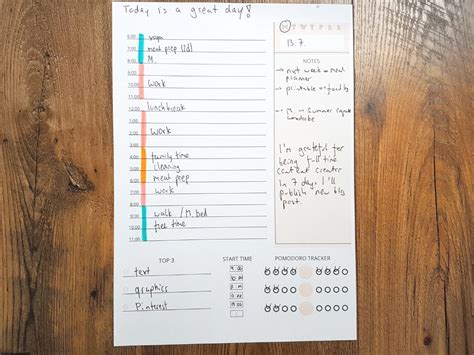 Today is a great day!
M T W T F S S
13.7.
5:00
6:00 yoga
7:00 meal prep
8:00 M.
9:00
10:00 work
11:00
12:00 lunchbreak
1:00
2:00 work
3:00
4:00 family time
5:00 cleaning
6:00 meal prep
7:00 work
8:00
9:00 walk / M. bed
10:00 free time
11:00
NOTES
→ next week - meal
planner
→ printable -
→ M. - summer
wardrobe
I'm grateful for
being full time
content creator
In 7 days I'll
publish new blog
post.
TOP 3
text
graphics
Pinterest
START TIME
POMODORO TRACKER